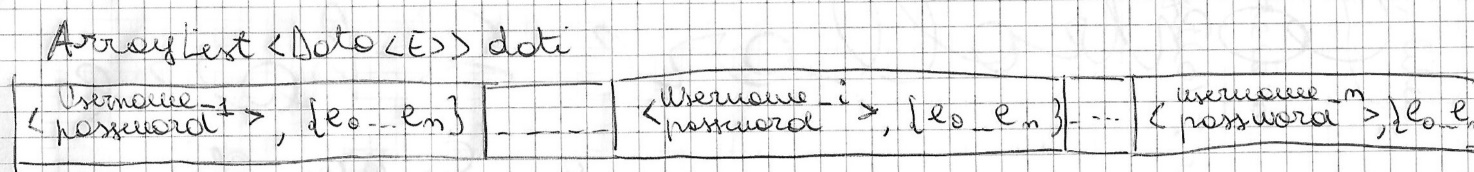 ArrayList <Dato<E>> dati
< Username_1 password >, {e0...en} ----- < Username_i password >, {e0_en} ... < username_n password >, {e0_e